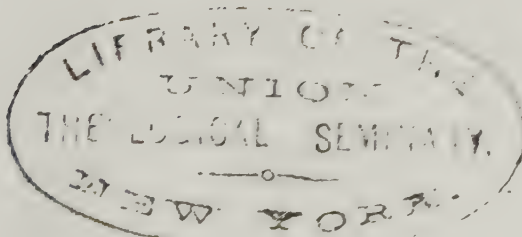 LIBRARY OF THE
UNION
THEOLOGICAL SEMINARY,
NEW YORK.